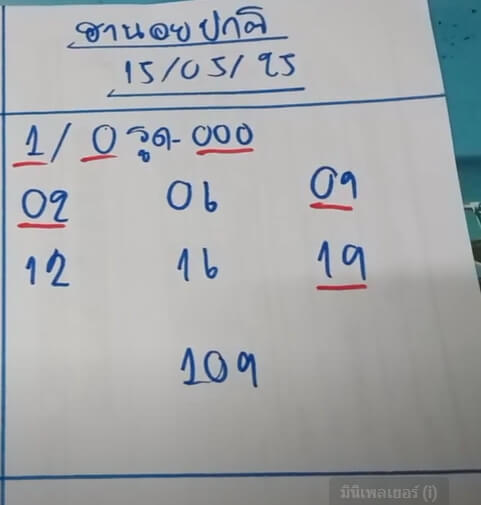 ฮานอยปกติ
15/05/25
1/ 0 รูด-000
02 06 09
12 16 19
109
มินิเพลเยอร์ (i)